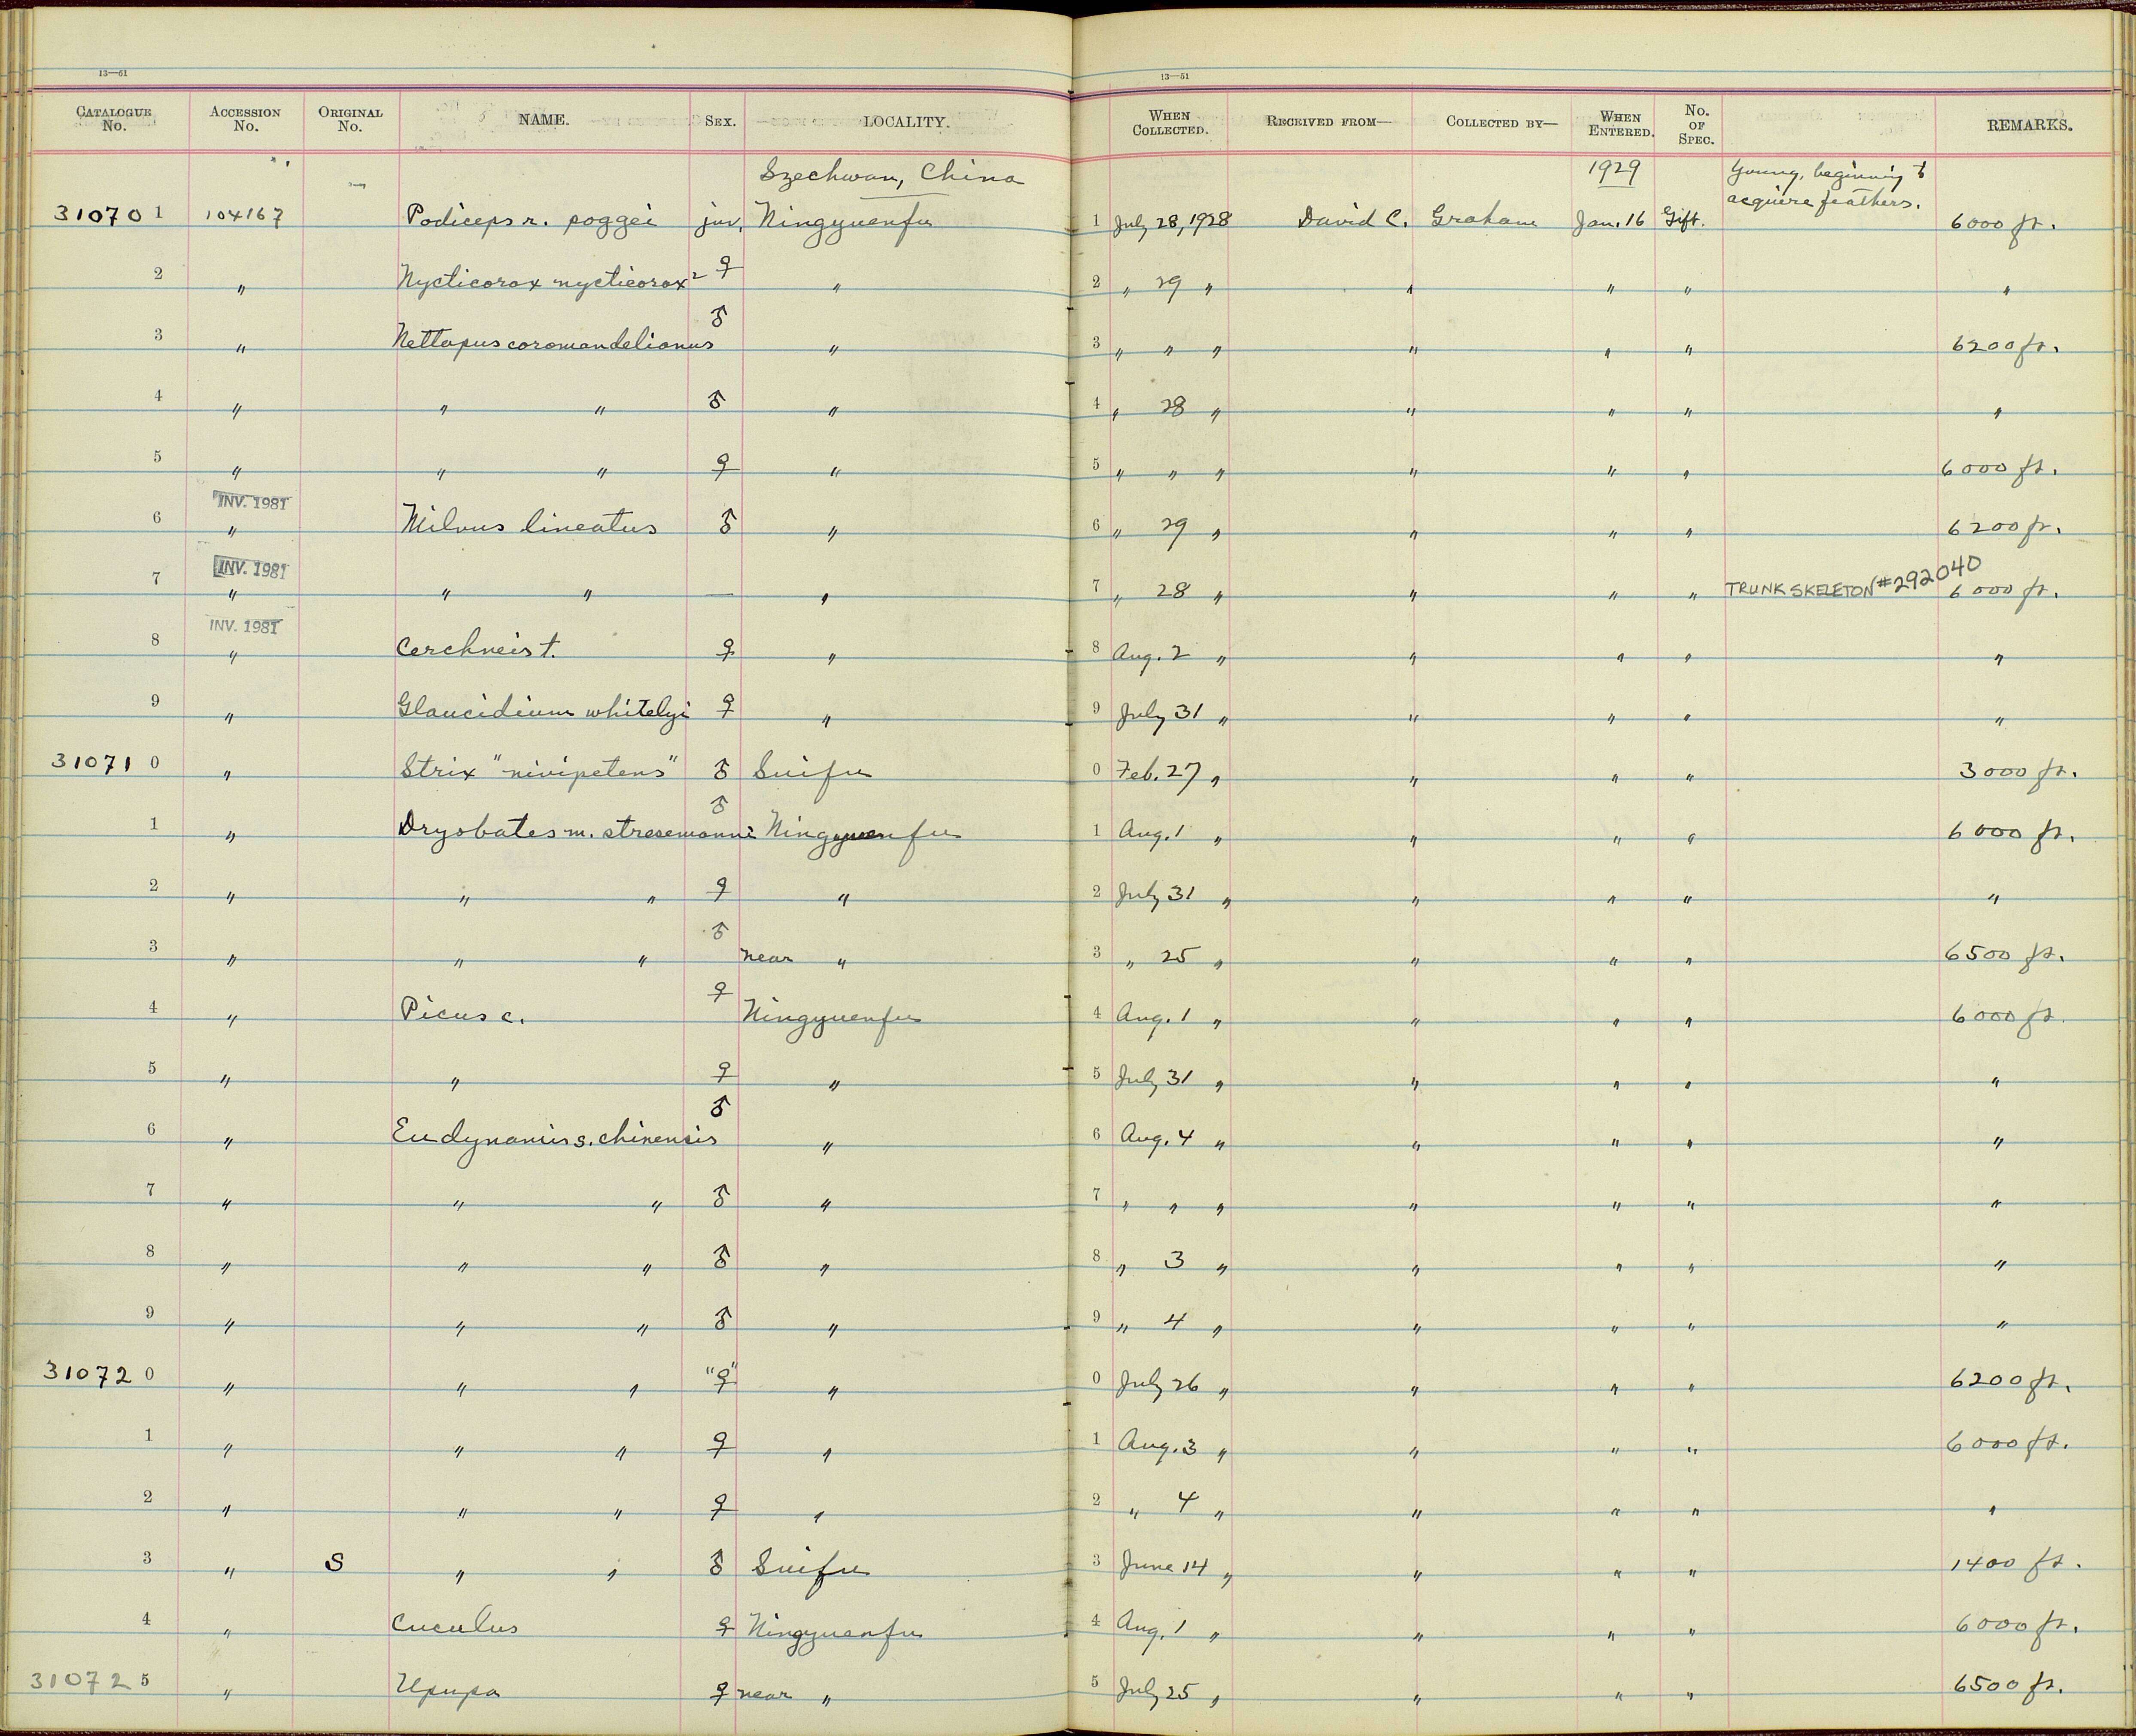 13—51 13—51
CATALOGUE No. ACCESSION No. ORIGINAL No. NAME. SEX. LOCALITY. WHEN COLLECTED. RECEIVED FROM— COLLECTED BY— WHEN ENTERED. No. OF SPEC. REMARKS.
Szechwan, China 1929 Young, beginning to
acquire feathers.
31070 1 104167 Podiceps r. poggei juv. Ningyuenfu 1 July 28, 1928 David C. Graham Jan. 16 Gift. 6000 ft.
2 " Nycticorax nycticorax ♀ " 2 " 29 " " " " "
3 " Nettopus coromandelianus ♂ " 3 " " " " " " 6200 ft.
4 " " " ♂ " 4 " 28 " " " " "
5 " " " ♀ " 5 " " " " " " 6000 ft.
INV. 1981
6 " Milvus lineatus ♂ " 6 " 29 " " " " 6200 ft.
INV. 1981
7 " " " — " 7 " 28 " " " " TRUNK SKELETON #292040 6000 ft.
INV. 1981
8 " Cerchneis t. ♀ " 8 Aug. 2 " " " " "
9 " Glaucidium whitelyi ♀ " 9 July 31 " " " " "
31071 0 " Strix "nivipetens" ♂ Suifu 0 Feb. 27 " " " " 3000 ft.
1 " Dryobates m. stresemanni ♂ Ningyuenfu 1 Aug. 1 " " " " 6000 ft.
2 " " " ♀ " 2 July 31 " " " " "
3 " " " ♂ near " 3 " 25 " " " " 6500 ft.
4 " Picus c. ♀ Ningyuenfu 4 Aug. 1 " " " " 6000 ft.
5 " " ♀ " 5 July 31 " " " " "
6 " Eudynamis s. chinensis ♂ " 6 Aug. 4 " " " " "
7 " " " ♂ " 7 " " " " " " "
8 " " " ♂ " 8 " 3 " " " " "
9 " " " ♂ " 9 " 4 " " " " "
31072 0 " " " "♀" " 0 July 26 " " " " 6200 ft.
1 " " " ♀ " 1 Aug. 3 " " " " 6000 ft.
2 " " " ♀ " 2 " 4 " " " " "
3 " S " " ♂ Suifu 3 June 14 " " " " 1400 ft.
4 " Cuculus ♀ Ningyuenfu 4 Aug. 1 " " " " 6000 ft.
31072 5 " Upupa ♀ near " 5 July 25 " " " " 6500 ft.